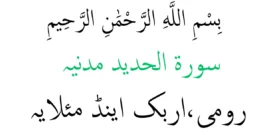 بِسْمِ اللَّهِ الرَّحْمَٰنِ الرَّحِيمِ
سورة الحديد مدنیہ
رومی،اربک اینڈ مئلایہ